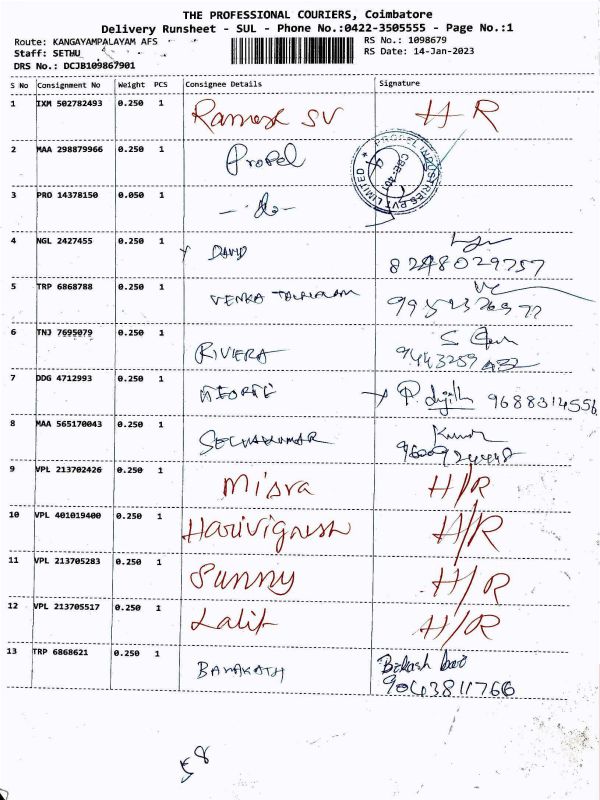 THE PROFESSIONAL COURIERS, Coimbatore
Delivery Runsheet - SUL - Phone No.:0422-3505555 - Page No.:1
Route: KANGAYAMPALAYAM AFS RS No.: 1098679
Staff: SETHU RS Date: 14-Jan-2023
DRS No.: DCJB109867901
S No Consignment No Weight PCS Consignee Details Signature
1 IXM 502782493 0.250 1 Ramesh SV H R
2 MAA 298879966 0.250 1 Propel
PROPEL INDUSTRIES PVT LIMITED * CBE-401
3 PRO 14378150 0.050 1
4 NGL 2427455 0.250 1 DAVID
8248029757
5 TRP 6868788 0.250 1 VENKA
6 TNJ 7695079 0.250 1 RIVIERA
7 DDG 4712993 0.250 1 GEORGE 9688314556
8 MAA 565170043 0.250 1 SELVAKUMAR Kumar
9 VPL 213702426 0.250 1 Misra H/R
10 VPL 401019400 0.250 1 Harivignesh H/R
11 VPL 213705283 0.250 1 Sunny H/R
12 VPL 213705517 0.250 1 Lalit H/R
13 TRP 6868621 0.250 1
9043811766